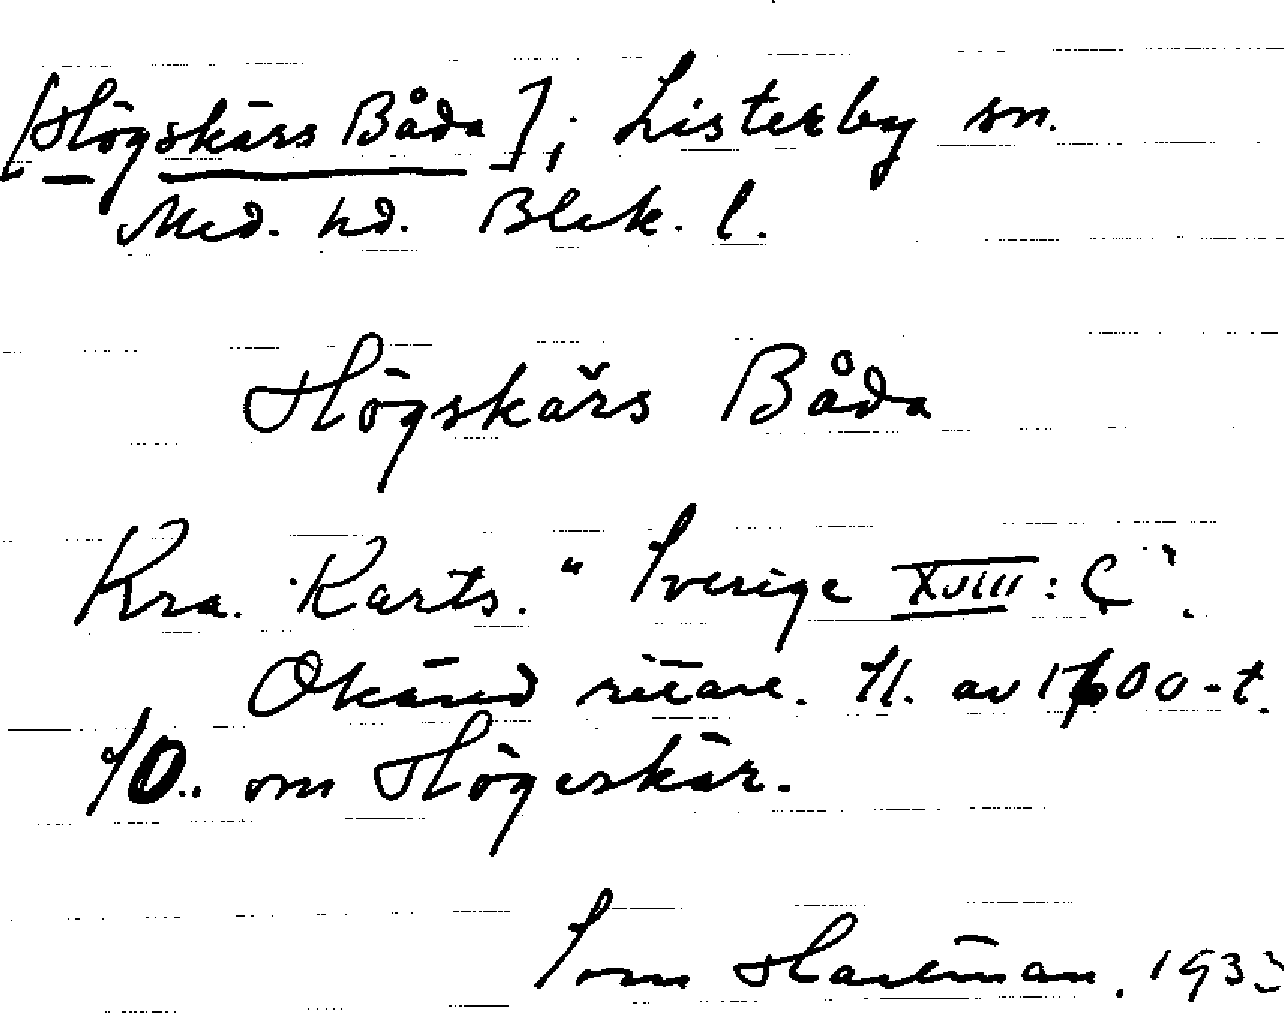 [Högskärs Båda]; Listerby sn.
Med. hd. Blek. l.
Högskärs Båda
Kra. Karts. "Sverige XVIII: C".
Okänd ritare. Sl. av 1600-t.
SO.. om Högeskär.
Sven Hartman. 1933